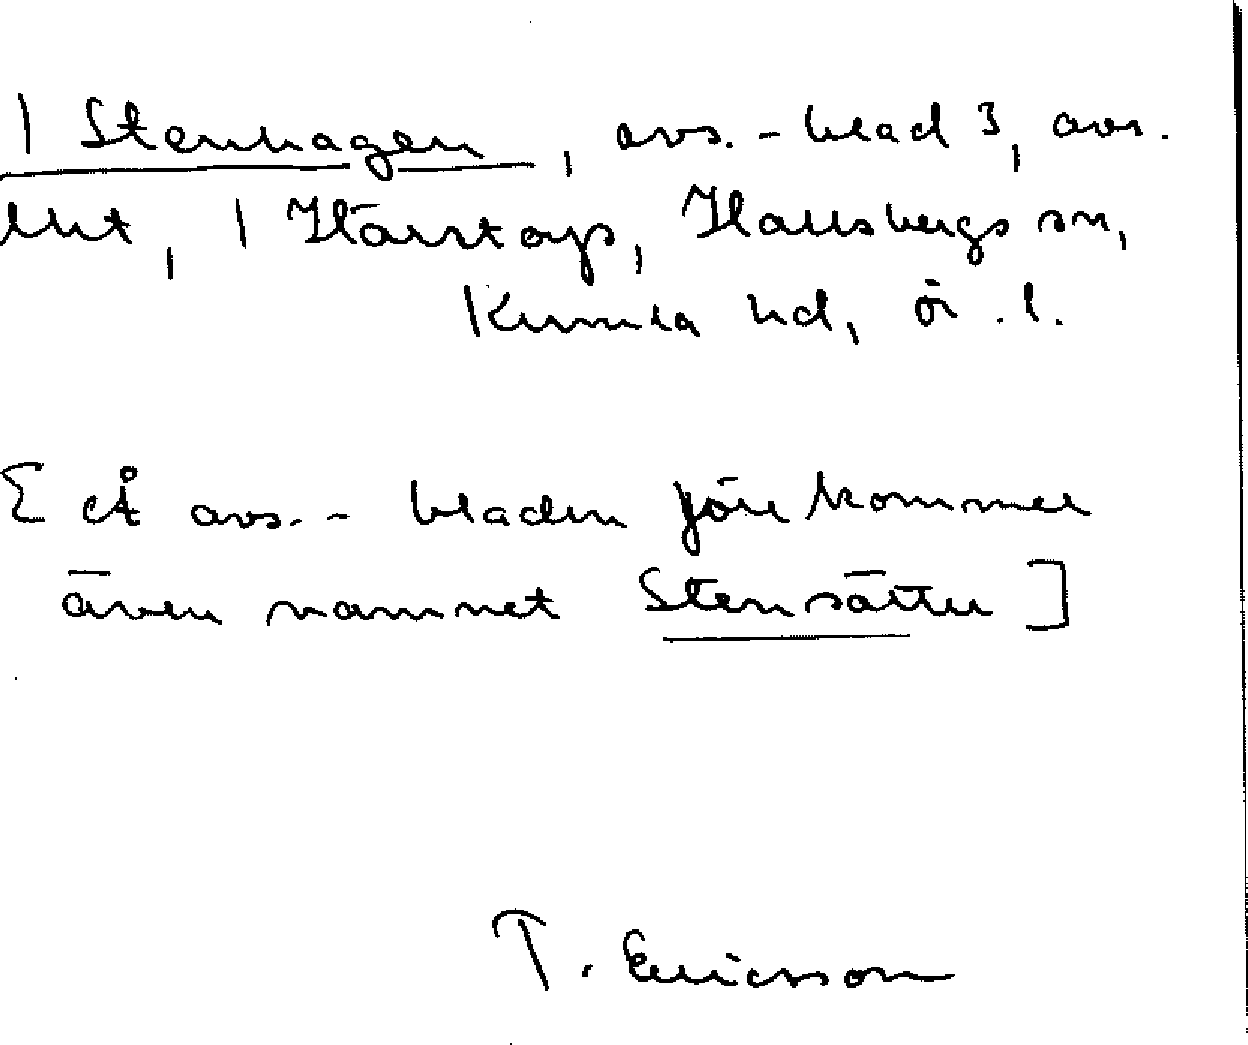 | Stenhagen, avs.-blad 3, avs.
lht, | Härstorp, Hallsbergs sn,
Kumla hd, ör. l.
[På avs.-bladen förekommer
även namnet Stensätter]
T. Ericsson